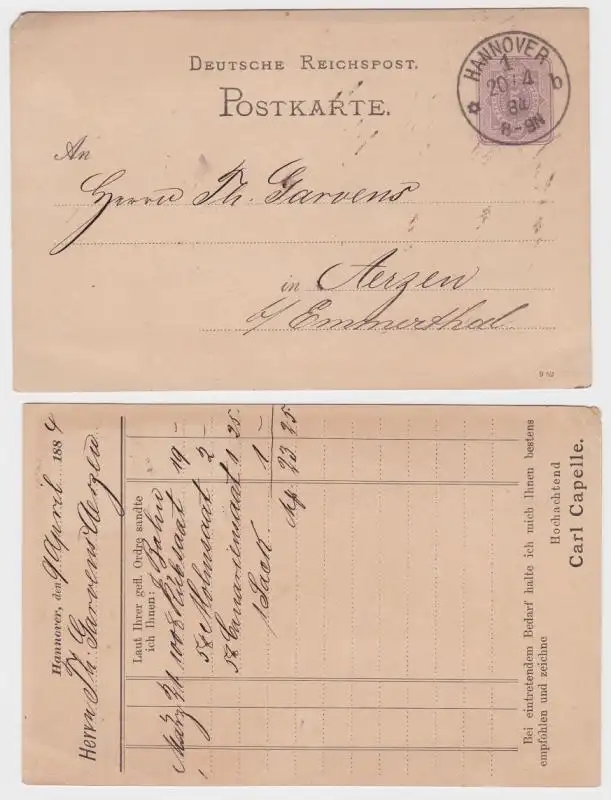 DEUTSCHE REICHSPOST.
POSTKARTE.
HANNOVER
1 b
20 4
84
8-9N
An
Herrn Th. Garvens
in Aerzen
b/ Emmerthal
9 82
Hannover, den 9 April 1884
Herrn Th. Garvens Aerzen
Laut Ihrer gefl. Ordre sandte
ich Ihnen: p. Bahn
März 31. 100 ℔ Rübsaat 19 –
5 ℔ Mohnsaat 2 –
5 ℔ Canariensaat 1 25.
1 Sack. 1 –
Mk. 23 25.
Bei eintretendem Bedarf halte ich mich Ihnen bestens
empfohlen und zeichne
Hochachtend
Carl Capelle.